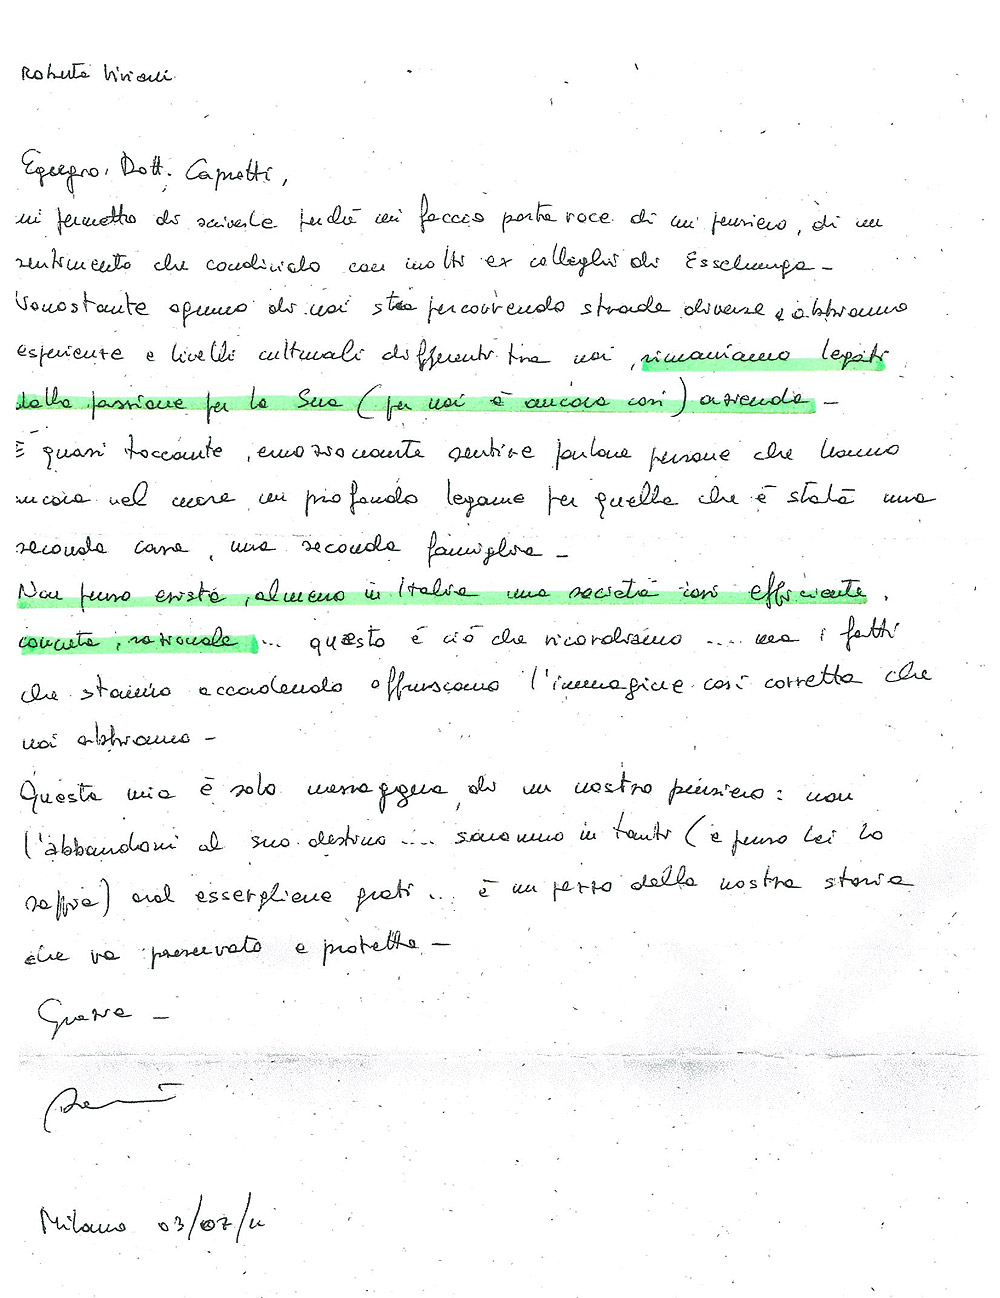 Roberta Viviani
Egregio. Dott. Caprotti,
mi permetto di scriverle perché mi faccio porta voce di un pensiero, di un
sentimento che condivido con molti ex colleghi di Esselunga -
Nonostante ognuno di noi stia percorrendo strade diverse e abbiamo
esperienze e livelli culturali differenti tra noi, rimaniamo legati
dalla passione per la Sua (per noi è ancora così) azienda -
È quasi toccante, emozionante sentire parlare persone che hanno
ancora nel cuore un profondo legame per quella che è stata una
seconda casa, una seconda famiglia -
Non penso esista, almeno in Italia una società così efficiente,
concreta, razionale ... questo è ciò che ricordiamo .... ma i fatti
che stanno accadendo offuscano l'immagine così corretta che
noi abbiamo -
Questa mia è solo messaggera di un nostro pensiero: non
l'abbandoni al suo destino .... saranno in tanti (e penso Lei lo
sappia) ad essergliene grati ... è un pezzo della nostra storia
che va preservato e protetto -
Grazie -
Milano 03/07/11